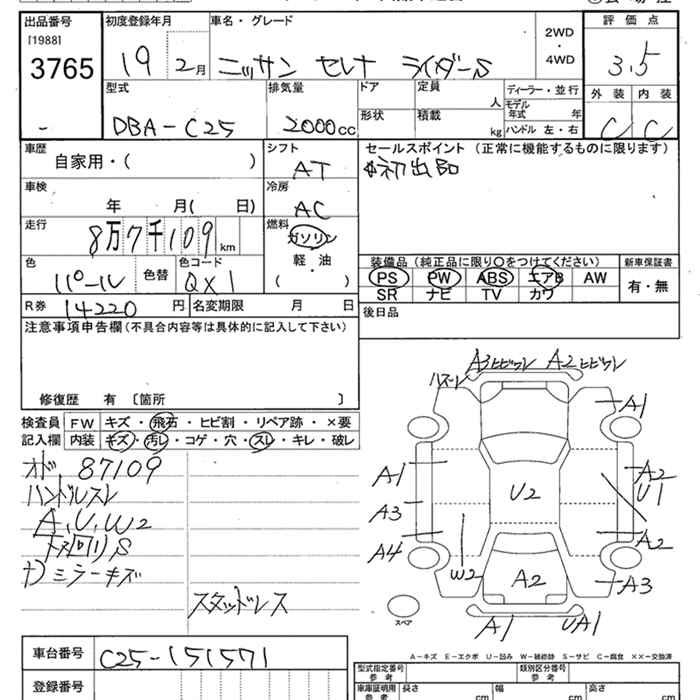 出品番号
[1988]
3765
-
初度登録年月
19 2月
車名・グレード
ニッサン セレナ ライダーS
2WD
・
4WD
評価点
3.5
外装 内装
C C
型式
DBA-C25
排気量
2000cc
ドア
形状
定員
人
積載
kg
ディーラー・並行
モデル年式 年
ハンドル 左・右
車歴
自家用・( )
シフト
AT
車検
年 月( 日)
冷房
AC
走行
8万7千109km
燃料
ガソリン
・
軽・油
( )
色
パール
色替
色コード
QX1
R券 14220 円
名変期限 月 日
セールスポイント (正常に機能するものに限ります)
初出品
装備品(純正品に限り○をつけてください)
PS PW ABS エアB AW
SR ナビ TV カワ
新車保証書
有・無
後日品
注意事項申告欄(不具合内容等は具体的に記入して下さい)
修復歴 有〔箇所 〕
検査員
記入欄
FW キズ・飛石・ヒビ割・リペア跡・×要
内装 キズ・汚レ・コゲ・穴・スレ・キレ・破レ
87109
ハンドルスレ
A,U,W2
ミラーキズ
スタッドレス
A3ヒビワレ A2ヒビワレ
A1
A1
A3
A4
A2
U1
A2
A3
U2
W2
A2
A1
UA1
スペア
A-キズ E-エクボ U-凹み W-補修跡 S-サビ C-腐食 ××-交換済
車台番号 C25-151571
登録番号
型式指定番号
参考
類別区分番号
参考
車庫証明用
参考
長さ cm
幅 cm
高さ cm